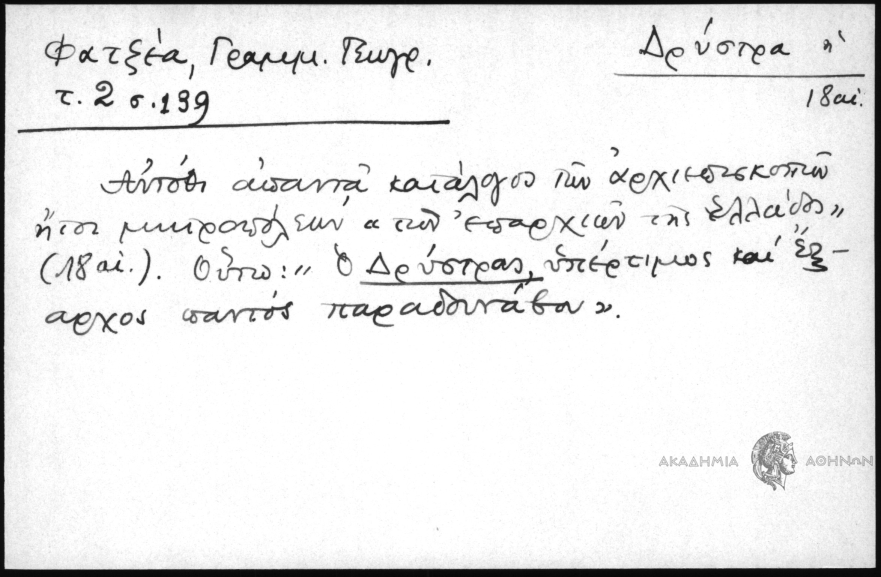 Φατζέα, Γραμμ. Γεωγρ.
τ. 2 σ. 139
Δρύστρα ἡ
18 αἰ.
Αὐτόθι ἀπαντᾷ κατάλογος τῶν ἀρχιεπισκοπῶν
ἤτοι μητροπόλεων « τῶν ἐπαρχιῶν τῆς Ἑλλάδος »
(18 αἰ.). Οὕτω: » Ὁ Δρύστρας, ὑπέρτιμος καὶ ἔξ-
αρχος παντός παραδουνάβου ».
ΑΚΑΔΗΜΙΑ ΑΘΗΝΩΝ